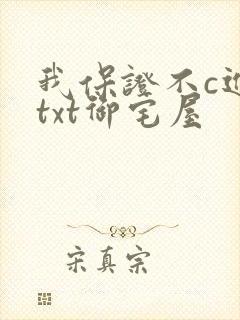 我保證不c进
txt御宅屋
宋真宗